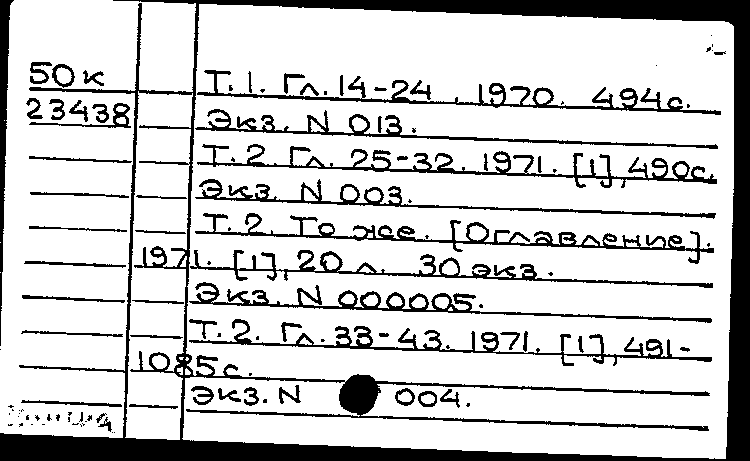 50к Т.1. Гл.14-24. 1970. 494с.
23438 Экз. N 013.
Т.2. Гл. 25-32. 1971. [1], 490с.
Экз. N 003.
Т.2. То же. [Оглавление].
1971. [1], 20 л. 30 экз.
Экз. N 000005.
Т.2. Гл.33-43. 1971. [1], 491-
1085с.
Экз. N 004.